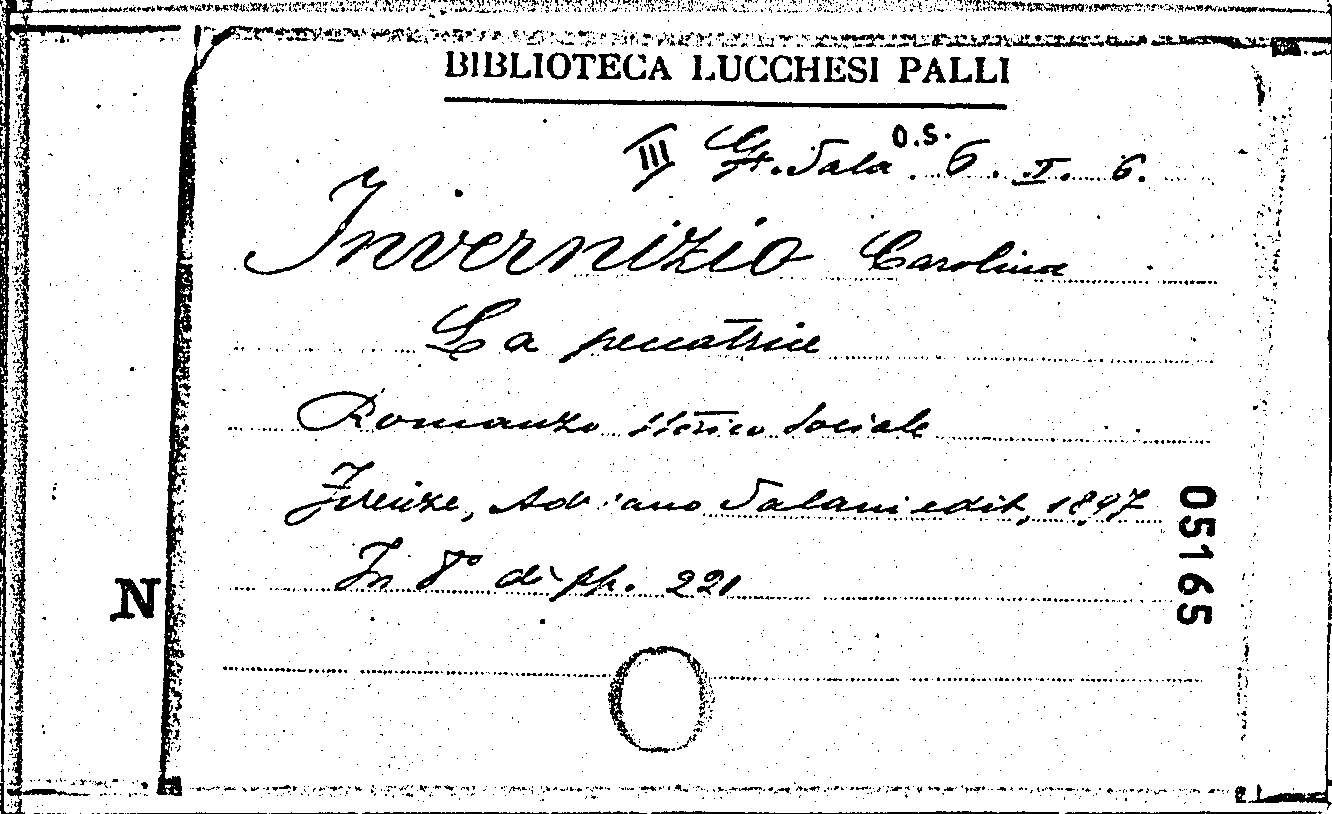 BIBLIOTECA LUCCHESI PALLI
III Gr. Sala O.S. 6. I. 6.
Invernizio Carolina
La peccatrice
Romanzo storico sociale
Firenze, Adriano Salani edit, 1897
In 8° di pp. 221
05165
N